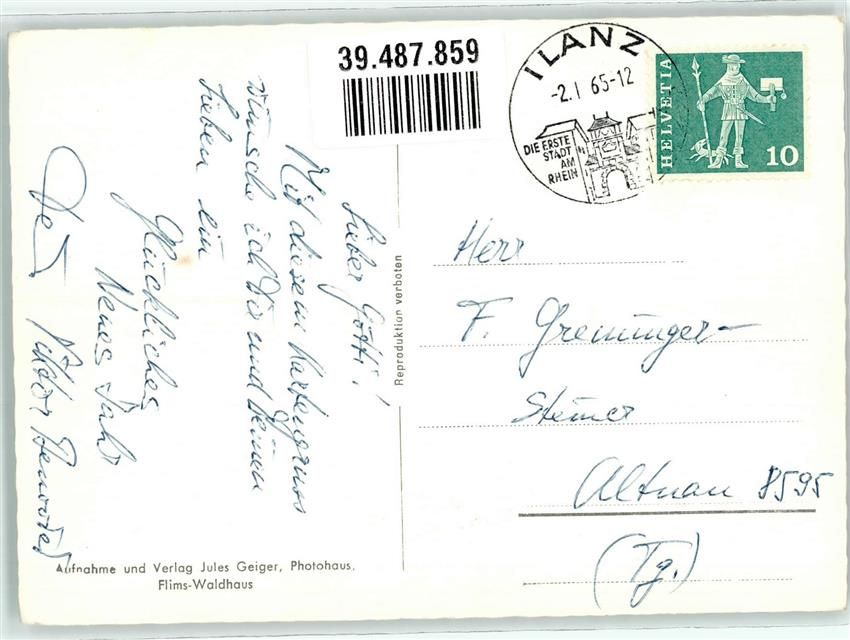 39.487.859
ILANZ
-2.I 65-12
DIE ERSTE
STADT
AM
RHEIN
HELVETIA
10
Lieber Götti!
Mit diesem Kartengruss
wünsche ich Dir und Deinen
Lieben ein
glückliches
Neues Jahr
Dein Viktor
Reproduktion verboten
Herr
F. Greminger-
Steiner
Altnau 8595
(Tg.)
Aufnahme und Verlag Jules Geiger, Photohaus,
Flims-Waldhaus